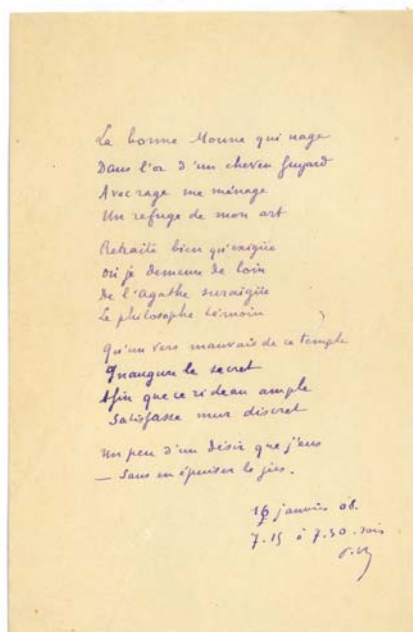 La bonne Moune qui nage
Dans l'or d'un cheveu fuyard
Avec rage me ménage
Un refuge de mon art
Retraite bien qu'exigüe
où je demeure de loin
De l'Agathe suraigüe
Le philosophe témoin
Qu'un vers mauvais de ce temple
Inaugure le secret
Afin que ce rideau ample
Satisfasse mur discret
Un peu d'un désir que j'eus
— Sans en épuiser le jus.
16 janvier 08.
7.15 à 7.30. soir